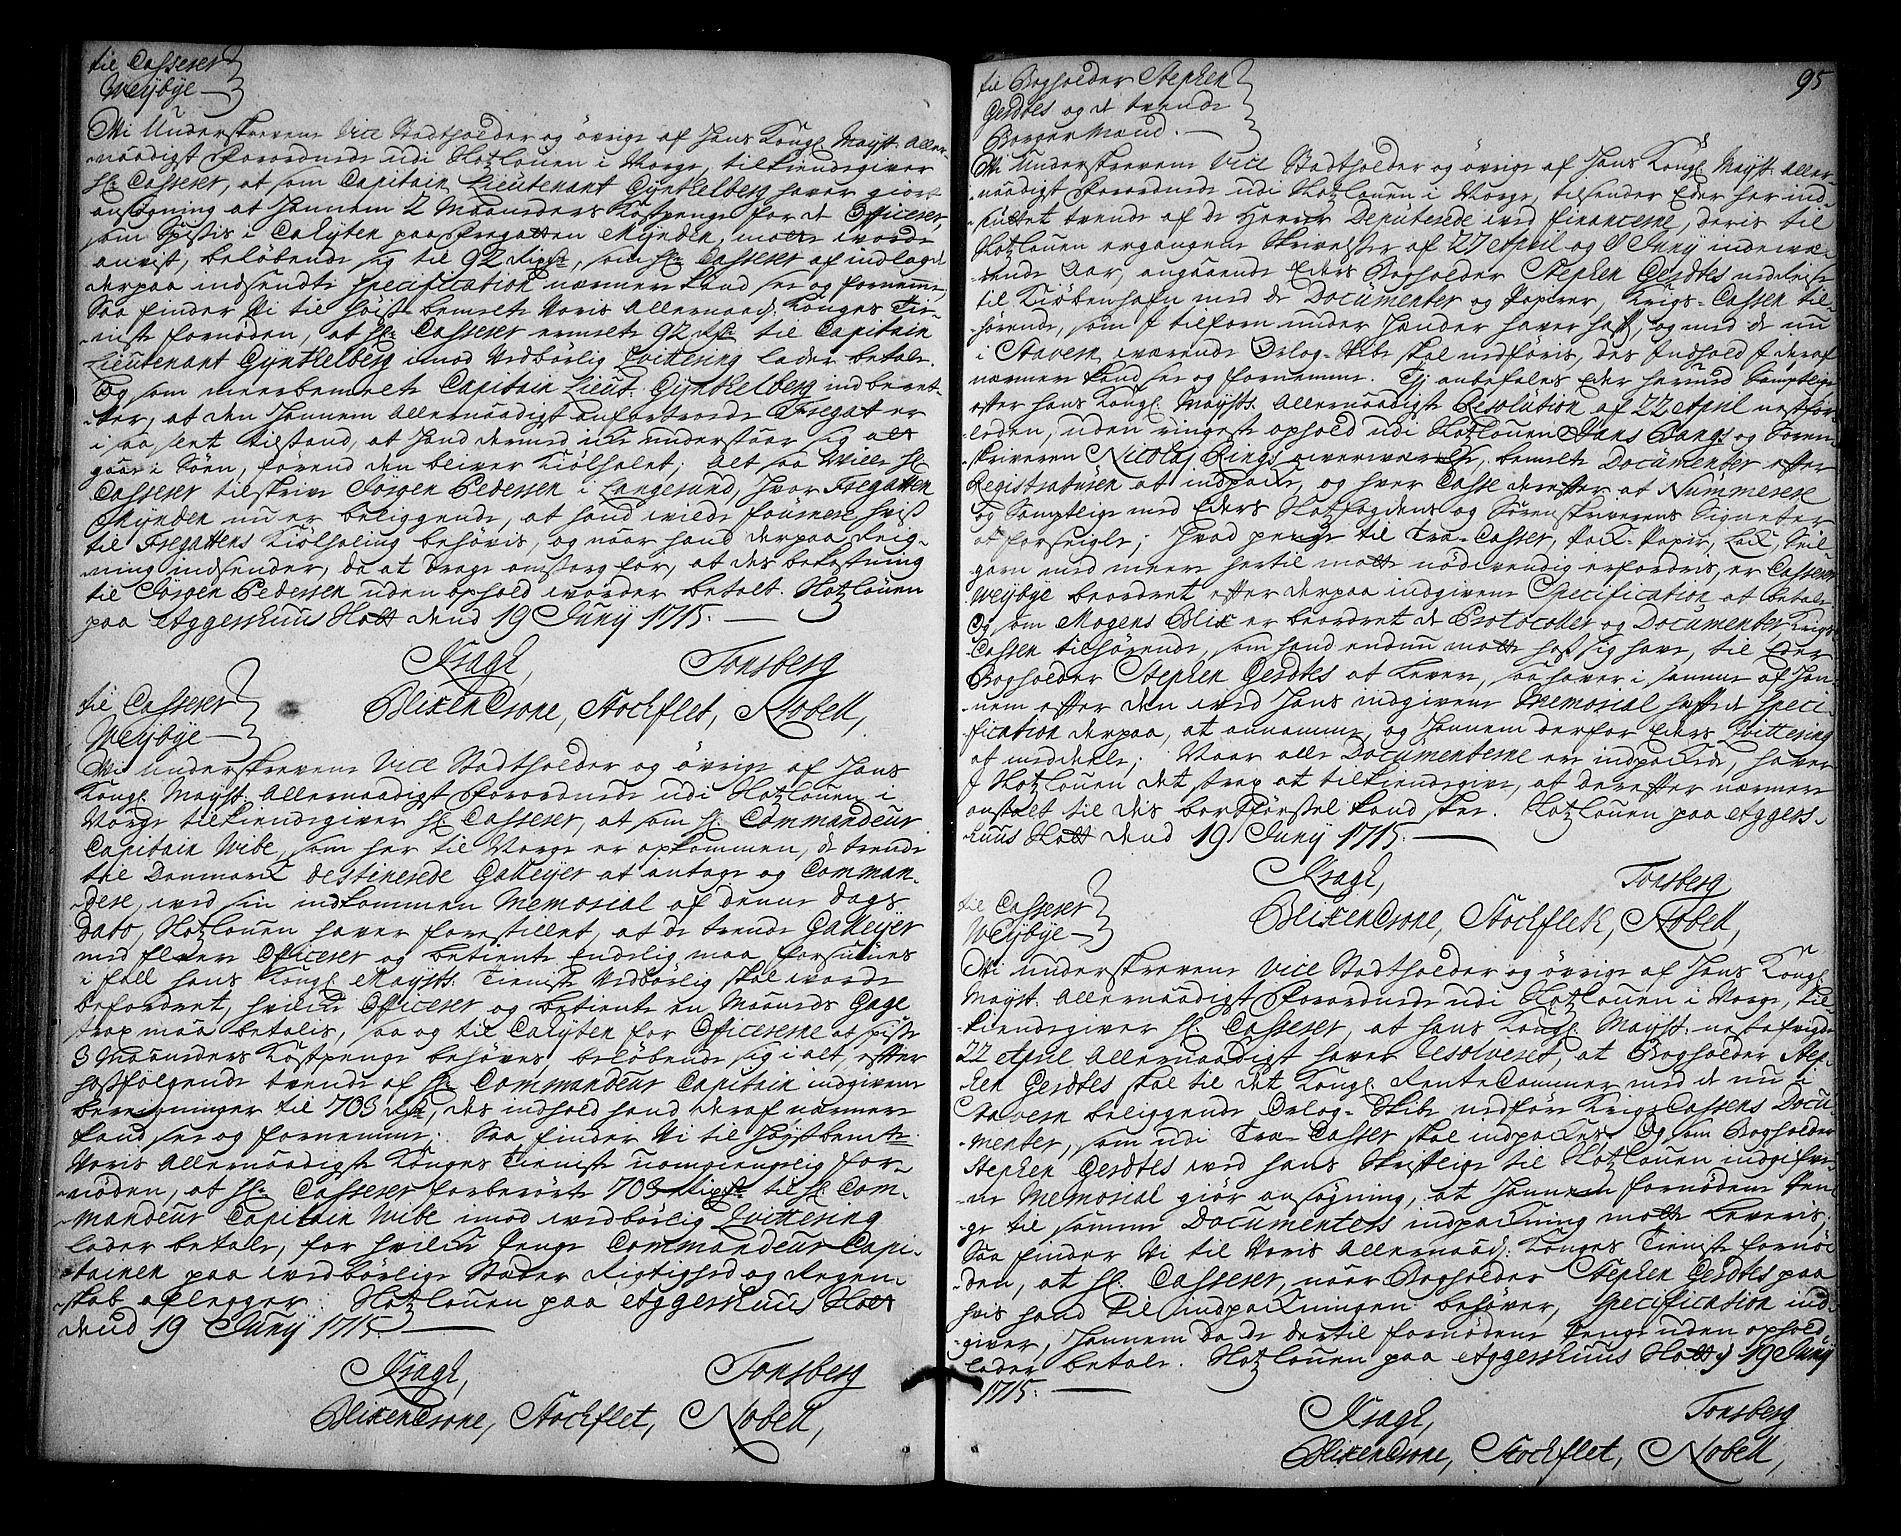 til Casserer
Weÿbÿe
Wi Underskrevene Vice Stadtholder og övrige af Hans Kongl. Maÿst. Aller-
-naadigst Forordnede udi Slotzlouen i Norge, tilkiendegiver
Hr. Casserer, at som Capitain Lieutenant Gÿntelberg haver giort
ansögning at hannem 2 Maaneders Kostpenge for de Officerer,
som Spisis i Caÿten paa Fregatten Mÿnden, motte worde
anvist, belöbende sig til 92 Rdr, som Hr. Casserer af indlagde
derpaa indsendte Specification nermere kand see og fornemme,
Saa finder Vi til höist bemelte Voris Allernaad. Konges Tie-
-niste fornöden, at Hr. Casserer ermelte 92 Rd. til Capitain
Lieutenant Gÿntelberg imod Vedbörlig Qvittering lader betale.
Og som meerbemelte Capitain Lieut. Gÿntelberg indberet-
-ter, at den hannem Allernaadigst anfortroede Fregat er
i saa slet tilstand, at hand dermed icke understaar sig at
gaae i Söen, förend den bliver Kiölhalet; Alt saa wille Hr.
Casserer tilskrive Jörgen Pedersen i Langesund, hvor Fregatten
Mÿnden nu er beliggende, at hand wilde fournere hvis
til Fregattens Kiölhaling behövis, og naar hand derpaa Reig-
-ning indsender, da at drage omsorg for, at des bekostning
til Jörgen Pedersen uden ophold worder betalt. Slotzlouen
paa Aggershuus Slott dend 19 Junÿ 1715.
Krage, Tonsberg
Blixencrone, Stockflet, Nobell,
til Casserer
Weÿbÿe
Wi underskrevene Vice Stadtholder og övrige af Hans
Kongl. Maÿst. Allernaadigst Forordnede udi Slotzlouen i
Norge tilkiendegiver Hr. Casserer, at som Hr. Commandeur
Capitain Wibe, som her til Norge er opkommen, de trende
til Danmark destinerede Galleÿer at antage og Comman-
-dere, ved sin indkommen Memorial af denne dags
dato, Slotzlouen haver forestillet, at de trende Galleÿer
med fleere Officerer og betiente endelig maa forsiunes
i fall hans Kongl. Maÿsts. Tieniste Vedbörlig skal worde
befordret, hvilke Officerer og betiente en Maaneds Gage
strax maa betalis, saa og til Caÿten for Officererne at spise
3 Maaneders Kostpenge behöves, belöbende sig i alt, efter
hosfölgende trende af Hr. Commandeur Capitain indgivene
beregninger til 703 Rdr, des indhold hand deraf nærmere
kand see og fornemme; Saa finder Vi til höÿstbemte.
Voris Allernaadigste Konges Tieniste uomgiengelig for-
-nöden, at Hr. Casserer forberörte 703 Rdr. til Hr. Com-
mandeur Capitain Wibe imod wedbörlig Qvittering
lader betale, for hvilke Penge Commandeur Capi-
-tainen paa wedbörlige Steder Rigtighed og Regen-
skab aflegger. Slotzlouen paa Aggershuus Slott
dend 19 Junÿ 1715
Krage, Tonsberg
Blixencrone, Stockflet, Nobell,
95
til Bogholder Stephen
Gerdtes og de trende
Borger Mænd.
Wi Underskrevene Vice Stadtholder og övrige af Hans Kongl. Maÿst. Aller-
-naadigst Forordnede udi Slotzlouen i Norge, tilsender Eder her ind-
-sluttet trende af de Herrer Deputerede ved Financerne, deris til
Slotzlouen ergangene Skrivelser af 27 April og 8 Junÿ indewæ-
-rende Aar, angaaende Eders Bogholder Stephen Gerdtes nedreise
til Kiöbenhafn med de Documenter og Papirer, Krigs-Cassen til-
hörende, som I tilforn under Hænder haver haft, og med de nu
i Stavern wærende Orlog-Skibe skal nedföris, des Indhold I deraf
nærmere kand see og fornemme. Tÿ anbefales Eder herved Samptlige
efter hans Kongl. Maÿsts. Allernaadigste Resolution af 22 April nestfor-
leden, uden ringeste ophold udi Slotzlouens Hans Bangs og Soren-
skriveren Nicolaj Rings overværelse, bemelte Documenter efter
Registraturen at indpacke, og hver Casse derefter at Nummerere
og Samptlige med Eders Slotsfogdens og Sörenskriverens Signeter
at forseigle; Hvad penge til Træ-Casser, Pack-Papir, Lack, Seil-
garn med meere hertil motte nödvendig erfordris, er Casserer
Weÿbÿe beordret efter derpaa indgivene Specification at betale
Og som Mogens Blix er beordret de Protocoller og Documenter Krigs
Cassen tilhörende, som hand endnu motte hos sig have, til Eder
Bogholder Stephen Gerdtes at levere, saa haver i samme af Han-
-nem efter den wed Hans indgivene Memorial heftede Speci-
fication derpaa, at annamme, og Hannem derfor Eders Qvittering
at meddele; Naar alle Documenterne ere indpackede, haver
I Slotzlouen det strax at tilkiendegive, at derefter nærmere
anstalt til dis bortförsel kand skee. Slotzlouen paa Aggers-
huus Slott dend 19 Junÿ 1715.
Krage, Tonsberg
Blixencrone, Stockflet, Nobell,
til Casserer
Weÿbÿe
Wi underskrevene Vice Stadtholder og övrige af Hans Kongl.
Maÿst. Allernaadigst Forordnede udi Slotzlouen i Norge, til-
kiendegiver Hr. Casserer, at hans Kongl. Maÿst. nestafvigte
22 April Allernaadigst haver Resolveret, at Bogholder Step-
hen Gerdtes skal til det Kongl. Rente Cammer med de nu i
Stavern beliggende Orlog-Skibe nedföre Krigs Cassens Docu-
menter, som udi Træ-Casser skal indpackes. Og som Bogholder
Stephen Gerdtes wed hans Skriftlige til Slotzlouen indgifve-
ne Memorial giör ansögning, at Hannem fornödene Pen-
ge til samme Documenters indpackning motte leveris;
Saa finder Vi til Voris Allernaad. Konges Tieniste fornö-
den, at Hr. Casserer, naar Bogholder Stephen Gerdtes paa
hvis hand til indpackningen behöver, Specification ind-
-giver, Hannem da de dertil fornödene Penge uden ophold
lader betale. Slotzlouen paa Aggershuus Slott d. 19 Junÿ
1715.
Krage, Tonsberg
Blixencrone, Stockflet, Nobell,